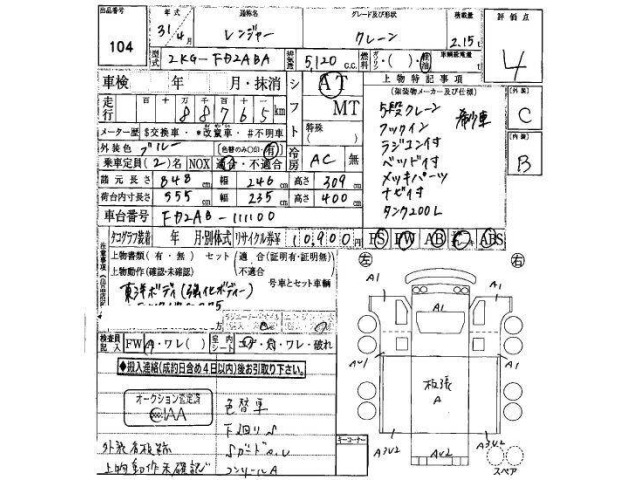 出品番号 104
年式 31/4月
通称名 レンジャー
グレード及び形状 クレーン
積載量 2.15t
評価点 4
型式 2KG-FD2ABA
排気量 5,120 c.c.
燃料 ガソリン・( )・軽油
車検 年 月・抹消
シフト AT
MT
特殊( )
上物特記事項
(架装物メーカー及び仕様)
5段クレーン 希少車
フックイン
ラジコン付
ベッド付
メッキパーツ
ナビ付
タンク200L
外装 C
内装 B
走行 百 十 万 千 百 十 km
88765
メーター歴 $交換車・*改ざん車・#不明車
外装色 ブルー (色替のみ○印・有)
乗車定員 (2)名 NOX 適合・不適合
冷房 AC 無
諸元長さ 848cm 幅 246cm 高さ 309cm
荷台内寸長さ 555cm 幅 235cm 高さ 400cm
車台番号 FD2AB-111100
タコグラフ装着 年 月・別体式 リサイクル券¥ 10,900円
PS PW AB ABS
上物書類(有・無) セット(適合(証明有・証明無)
上物動作(確認・未確認) 不適合
号車とセット車輌
東洋ボディ(強化ボディー)
検査員記入 FW A・ワレ( ) 室内シート コゲ・穴・ワレ・破れ
◆搬入連絡(成約日含め4日以内)後お引取り下さい。
オークション査定済
CIAA
色替車
下廻りS
外装
上物動作未確認
左 右
A1 A1
A1
A1 A1
AU1 A1
板張
A
A3U2 AU2 A3U2
キーコーナー
スペア